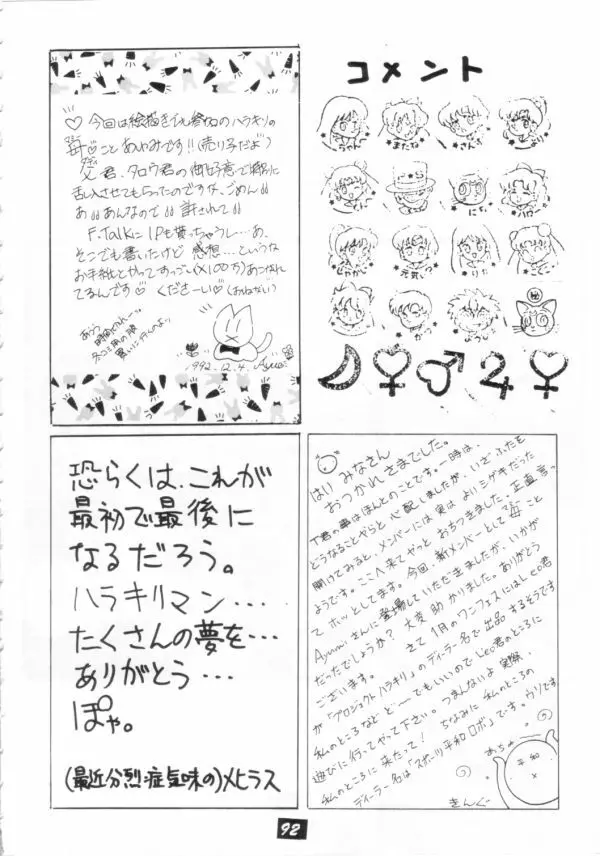 コメント
♡今回は絵描きでも登場のハラキリの
苺♡ことあゆみです!!(売り子だよ)
父君、タロウ君の御好意で特別に
乱入させてもらったのですケド、ごめん!!
あ!!あんなので!!許されて!!
F.Talkに1Pも貰っちゃうし…あ、
そこでも書いたけど 感想…というな
お手紙とかってすっごい(×100万)あこがれ
てるんです♡ くださーい♡(おねがい)
あうう
時間ぐれ〜
冬コミ用の服
買いに行くのよ
1992.12.4. Ayumi
さんご
元気
りか
恐らくは、これが
最初で最後に
なるだろう。
ハラキリマン…
たくさんの夢を…
ありがとう…
ぽゃ。
(最近分烈症気味の)メヒラス
はい みなさん
おつかれさまでした。
T君の事はほんとのことです。一時は、
どうなることやらと心配しましたが、いざふたを
開けてみると、メンバーには実はよいシゲキだった
ようです。ここへ来てやっとおちつきました。正直言っ
てホッとしてます。今回、新メンバーとして苺こと
Ayumiさんに登場していただきましたが、いかが
だったでしょうか?大変助かりました。ありがとう
ございます。 さて1月のワンフェスにはLeo君
が「プロジェクトハラキリ」のディーラー名で出品するそうです
私のところなどど〜でもいいのでLeo君のところに
遊びに行ってやって下さい。つまんないよ実際。
私のところに来たって! ちなみに私のところの
ディーラー名は「スポーツ平和ロボ」です。ウソです
めちゃ
平和
きんぐ
92